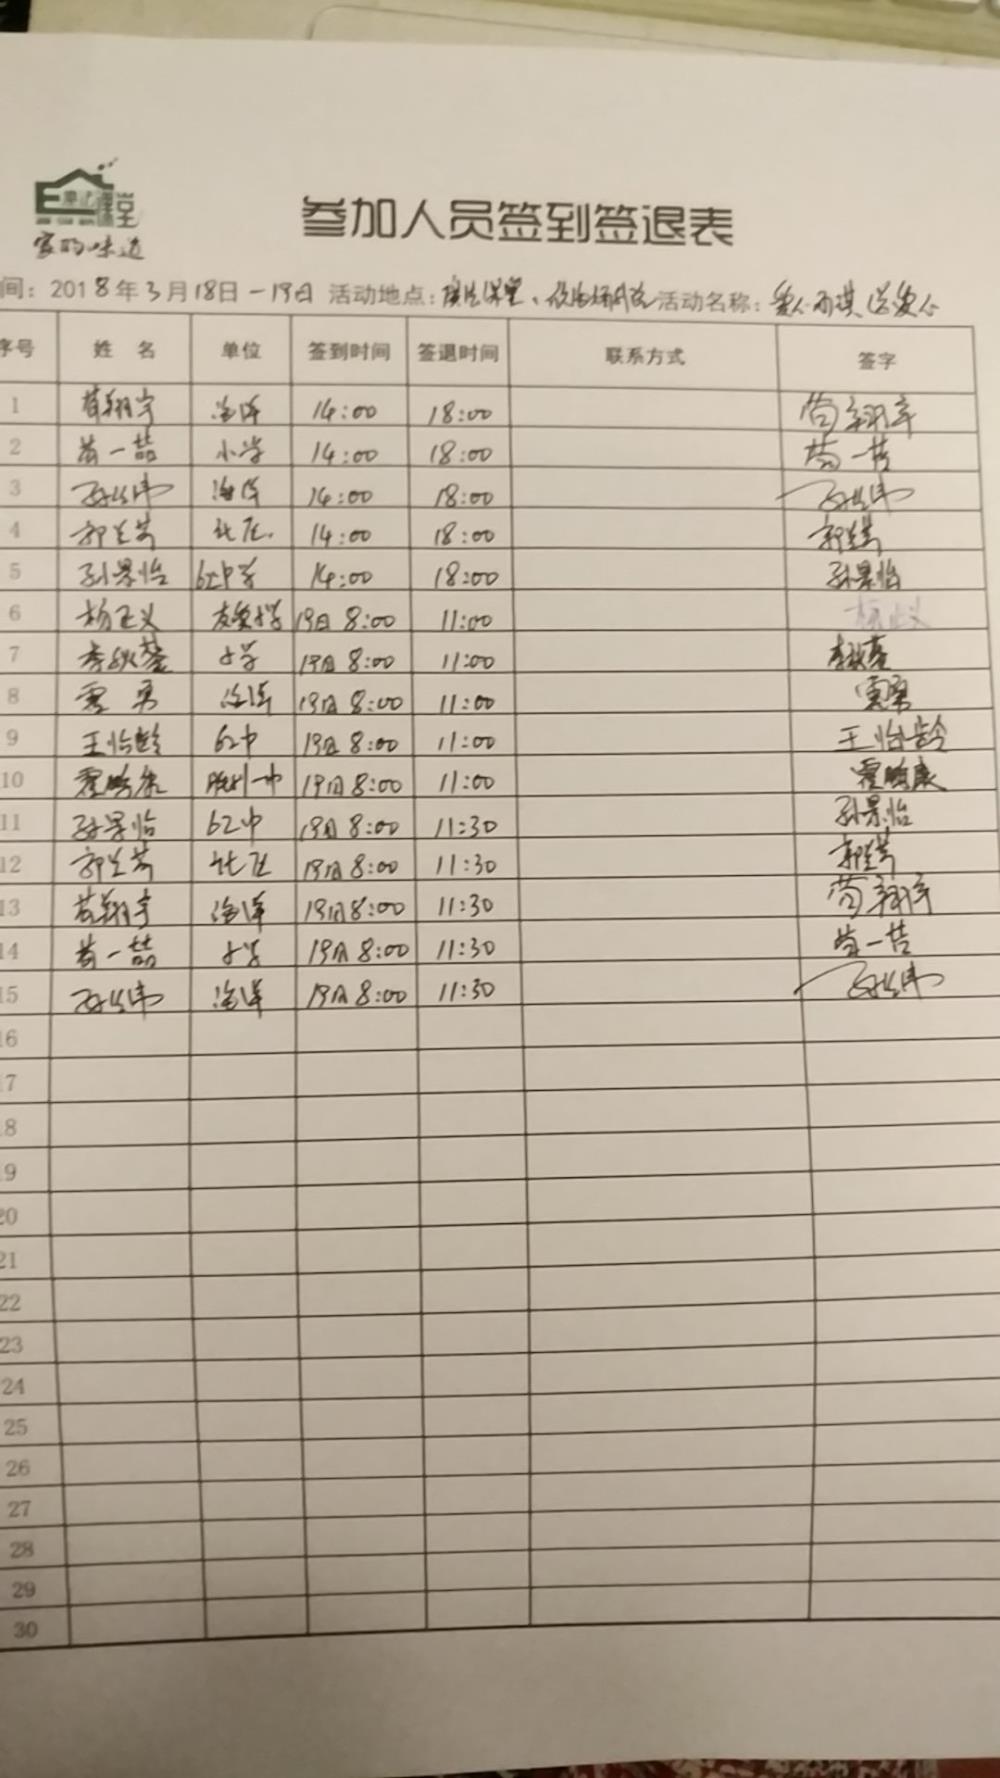 家的味道
参加人员签到签退表
间：2018年3月18日－19日 活动地点： 活动名称：
序号 姓 名 单位 签到时间 签退时间 联系方式 签字
1 苟翔宇 海洋 14:00 18:00 苟翔宇
2 苟一喆 小学 14:00 18:00 苟一喆
3 海洋 14:00 18:00
4 郭兰芳 14:00 18:00 郭兰芳
5 孙景怡 62中学 14:00 18:00 孙景怡
6 杨正义 小学 19日 8:00 11:00 杨正义
7 李秋蓉 小学 19日 8:00 11:00 李秋蓉
8 霍勇 海洋 19日 8:00 11:00 霍勇
9 王怡龄 62中 19日 8:00 11:00 王怡龄
10 霍鹏康 胜利一中 19日 8:00 11:00 霍鹏康
11 孙景怡 62中 19日 8:00 11:30 孙景怡
12 郭兰芳 19日 8:00 11:30 郭兰芳
13 苟翔宇 海洋 19日 8:00 11:30 苟翔宇
14 苟一喆 小学 19日 8:00 11:30 苟一喆
15 海洋 19日 8:00 11:30
16
17
18
19
20
21
22
23
24
25
26
27
28
29
30